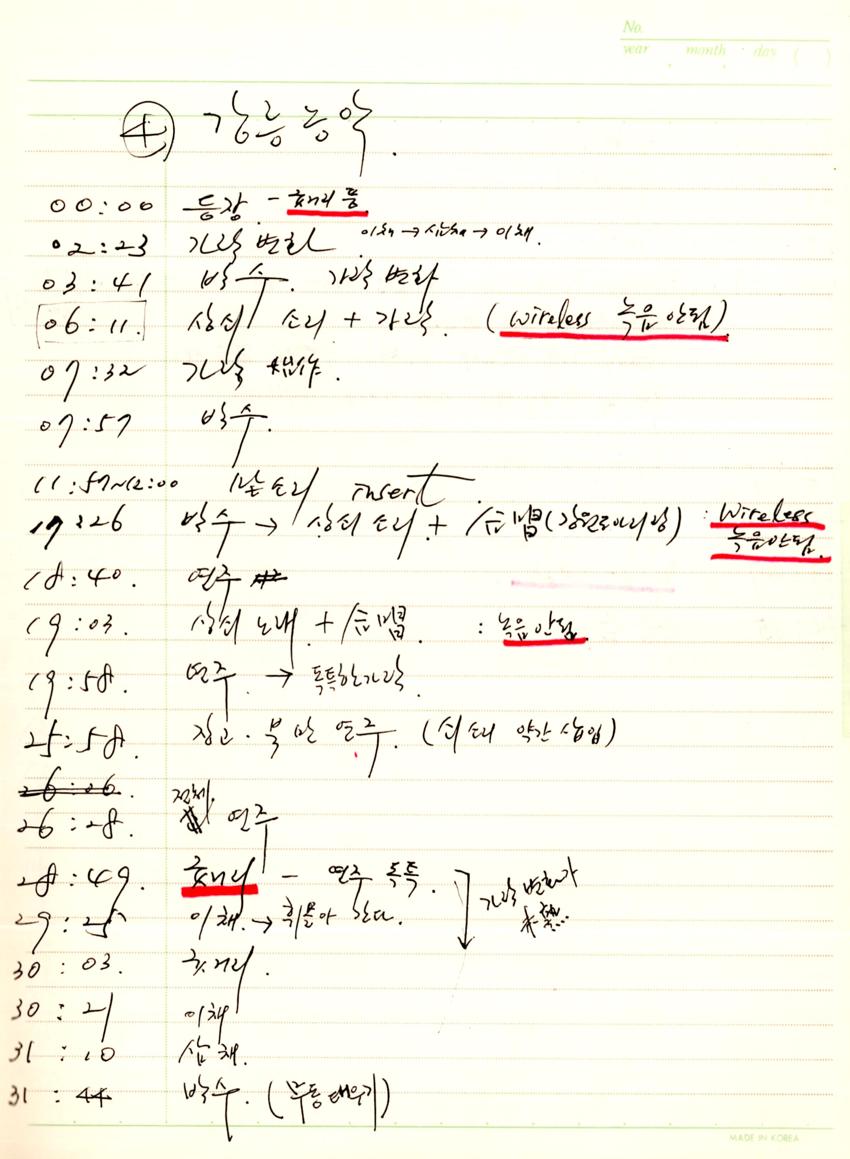 No.
year month day ( )
④ 강릉농악.
00:00 등장 - 휘머리 풍
02:23 가락 변화 이채→삼채→이채.
03:41 박수. 가락 변화
06:11. 상쇠 소리 + 가락. (wireless 녹음 안됨)
07:32 가락
07:57 박수.
11:57~12:00 insert.
17:26 박수 → 상쇠 소리 + 合唱 (강원도아리랑) : wireless
녹음안됨.
18:40. 연주
19:03. 상쇠 노래 + 合唱. : 녹음 안됨.
19:58. 연주. → 독특한 가락.
25:58. 장고·북 만 연주. (쇠 소리 약간 삽입)
26:06.
26:28. 전체 연주
28:49. 휘머리 - 연주 독특. 가락 변화가
29:25 이채. → 휘몰아 한다.
30:03. 휘머리.
30:21 이채
31:10 삼채.
31:44 박수. (무동태우기)
MADE IN KOREA